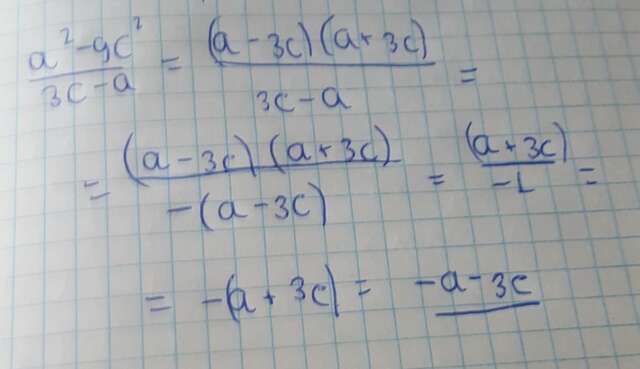 (a² - 9c²)/(3c - a) = ((a - 3c)(a + 3c))/(3c - a) =
= ((a - 3c)(a + 3c))/(-(a - 3c)) = (a + 3c)/(-1) =
= -(a + 3c) = -a - 3c